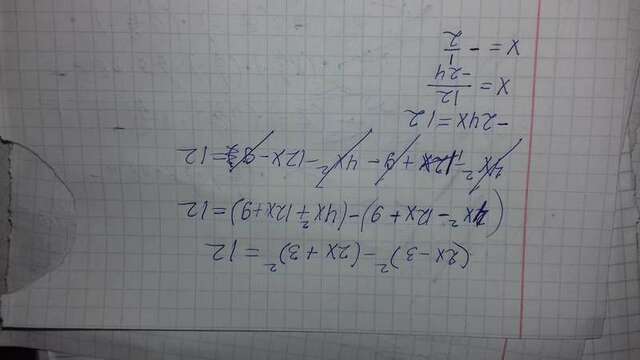 (2x-3)²-(2x+3)²=12
(4x²-12x+9)-(4x²+12x+9)=12
4x²-12x+9-4x²-12x-9=12
-24x=12
x=12/-24
x=-1/2